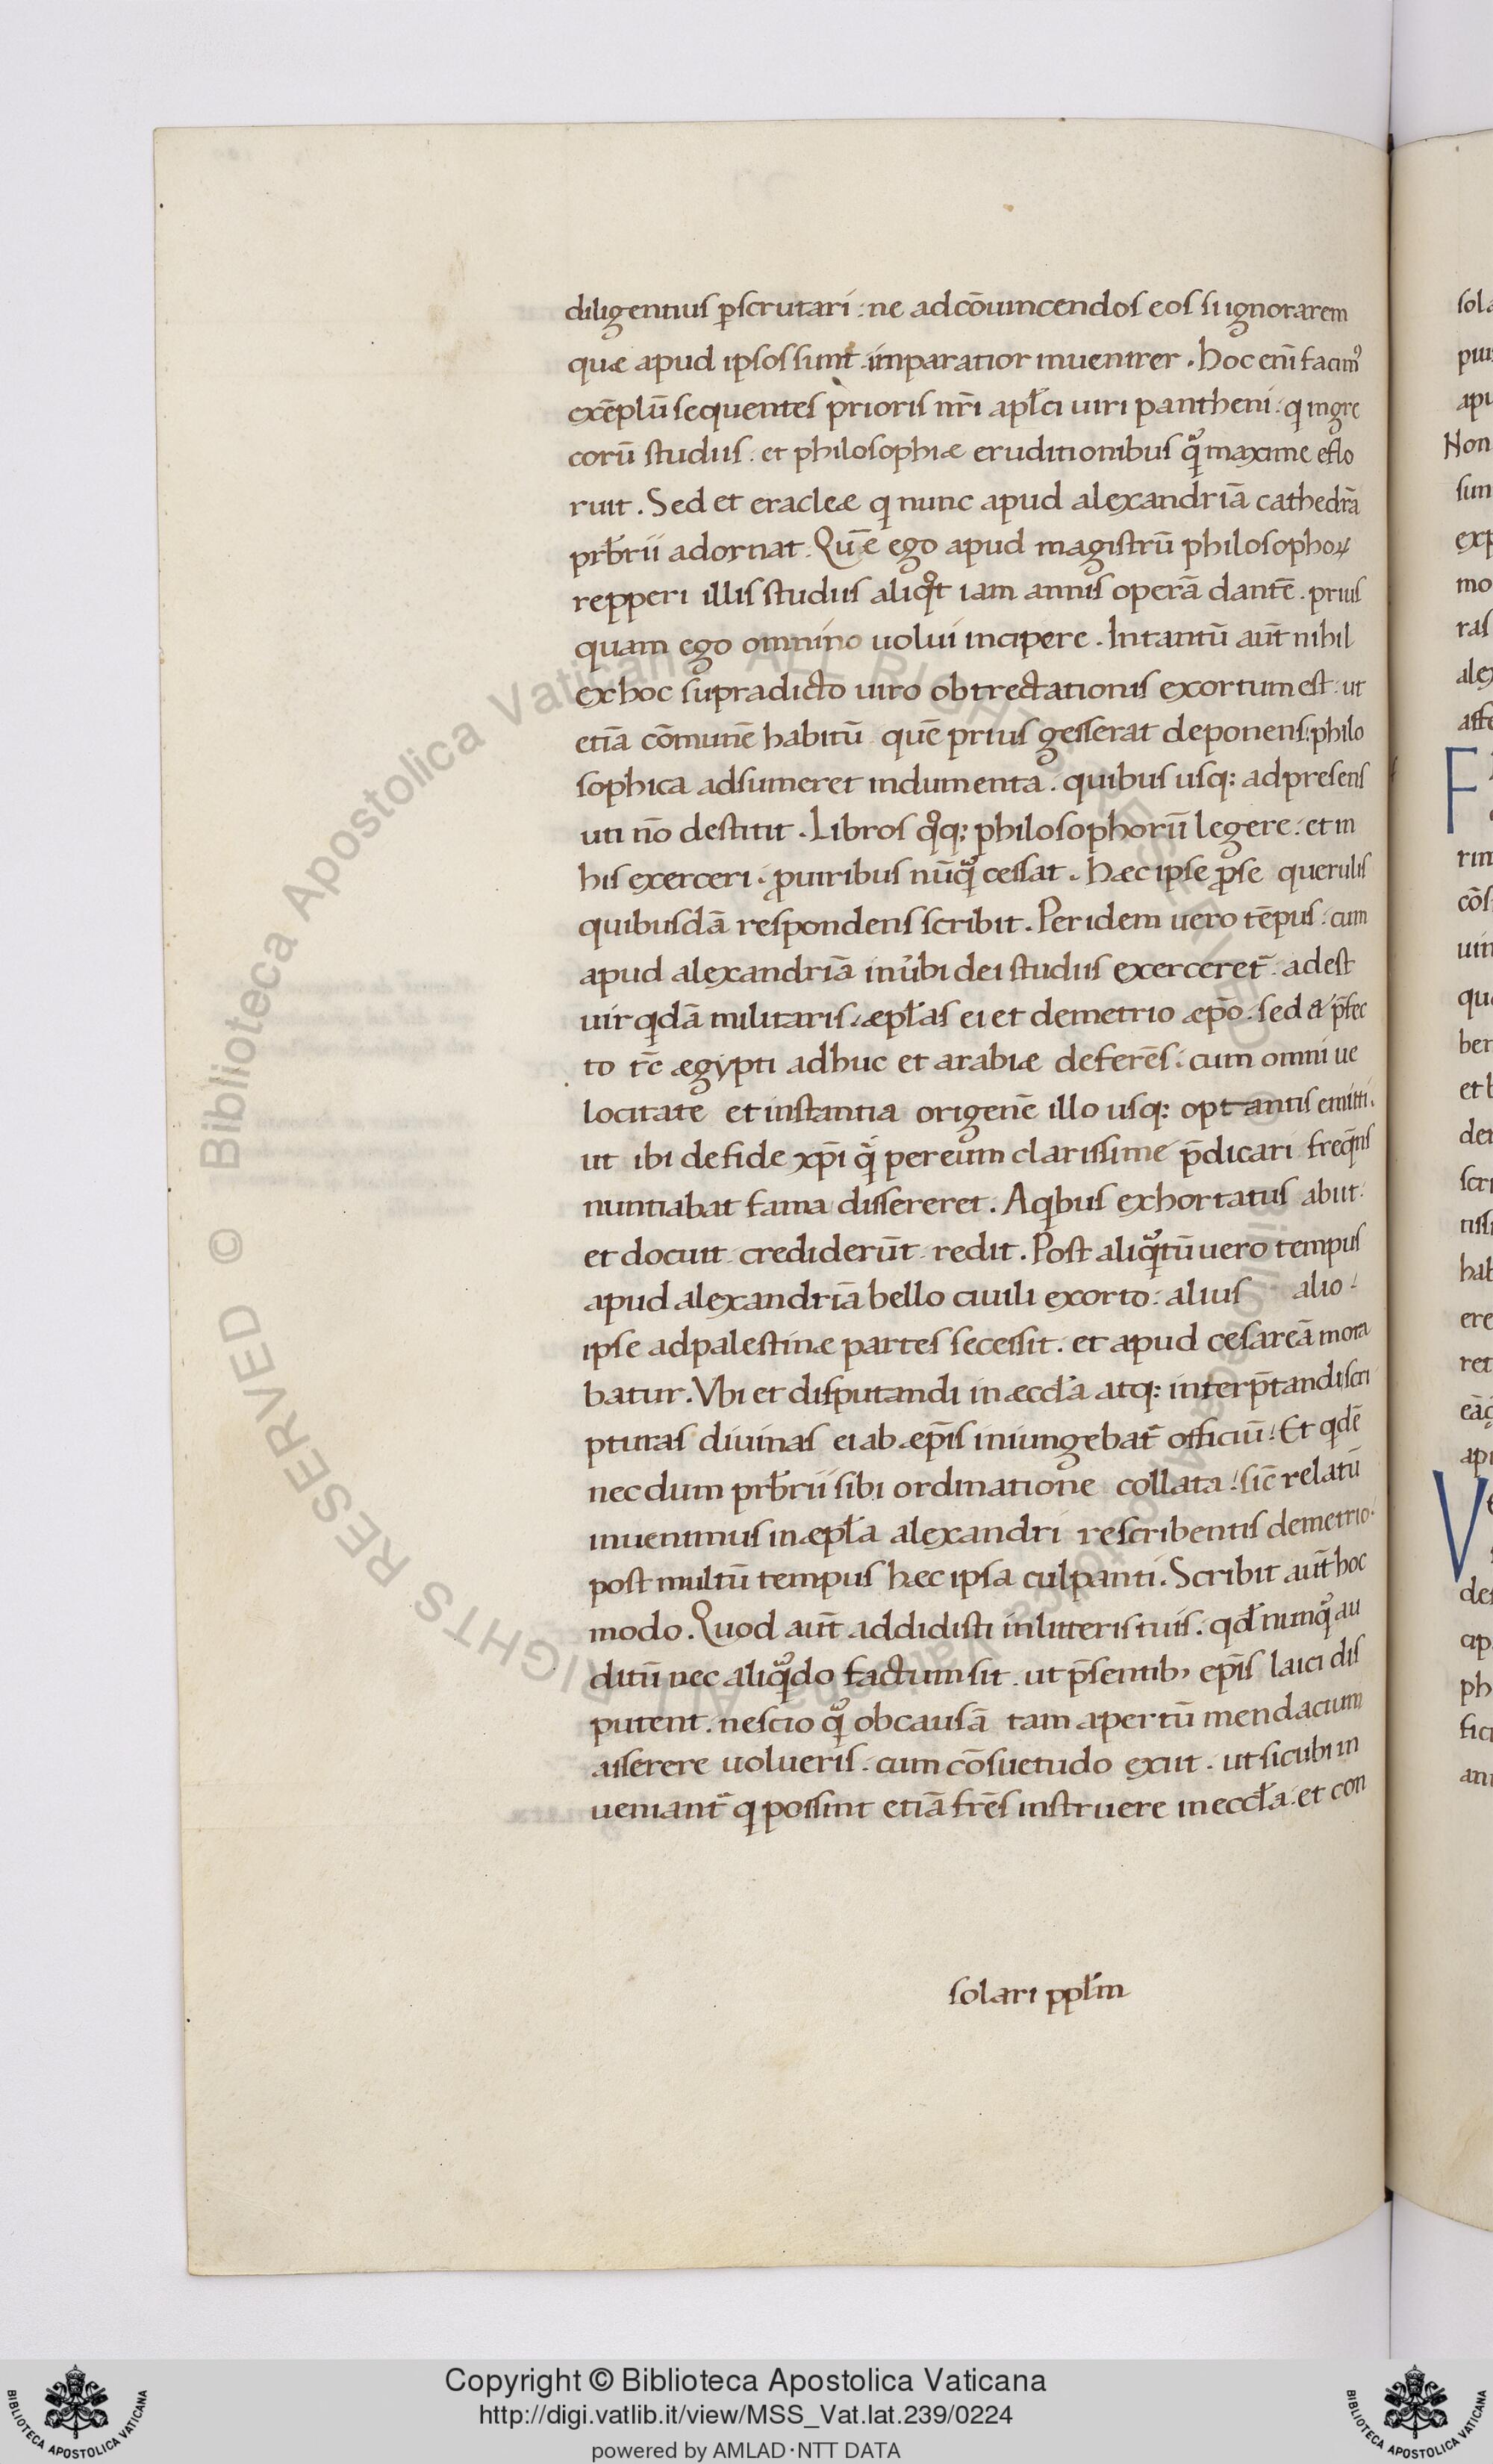 diligentius ꝑscrutari : ne ad cōuincendos eos si ignorarem
quæ apud ipsos sunt . imparatior inuenirer . hoc eni̅ facimꝰ
exēplū sequentes prioris nr̄i apl̄ci uiri pantheni : q in gre
corū studiis . et philosophiæ eruditionibus qͣ̃ maxime eflo
ruit . Sed et eracleæ q nunc apud alexandriā cathedrā
prb̄rii adornat . Quē ego apud magistrū philosophoꝝ
repperi illis studiis aliqͦt iam annis operā dantē . prius
quam ego omnino uolui incipere . In tantū aut̄ nihil
ex hoc supradicto uiro obtrectationis exortum est : ut
etiā cōmunē habitū quē prius gesserat deponens : philo
sophica adsumeret indumenta . quibus usq; ad presens
uti nō destitit . Libros qͦq; philosophorū legere : et in
his exerceri . ꝓ uiribus nūqͣ̃ cessat . hæc ipse ꝓ se querulis
quibusdā respondens scribit . Per idem uero tēpus : cum
apud alexandriā in u̓bi dei studiis exerceret̄ : adest
uir qdā militaris : æpl̄as ei et demetrio æpō . sed & p̄fec
to tc̄ ægypti adhuc et arabiæ deferēs : cum omni ue
locitate et instantia origenē illo usq; optantis emitti .
ut ibi de fide xp̄i q̇ per eum clarissime p̄dicari freq̄ns
nuntiabat fama dissereret . A qbus exhortatus abiit :
et docuit . crediderūt . redit . Post aliqͣ̃tū uero tempus
apud alexandriā bello ciuili exorto : alius alio :
ipse ad palestinæ partes secessit . et apud cesareā mora
batur . Vbi et disputandi in æccl̄a atq; interp̄tandi scri
pturas diuinas ei ab æp̄is iniungebat̄ officiū : Et qdē
nec dum prb̄rii sibi ordinatione collata : sic̄ relatū
inuenimus in æpl̄a alexandri rescribentis demetrio .
post multū tempus hæc ipsa culpanti . Scribit aut̄ hoc
modo . Quod aut̄ addidisti in litteris tuis . qd̄ nunqͣ̃ au
ditū nec aliqͣ̃do factum sit . ut p̄sentibꝫ ep̄is laici dis
putent . nescio qͣ̃ ob causā tam apertū mendacium
asserere uolueris . cum cōsuetudo exiit . ut sicubi in
ueniant̄ q possint etiā fr̄es instruere in eccl̄a : et con
solari ppl̄m
sola
piu
apu
Non
sun
exp
mo
ras
alex
affe
F
rin
cōs
uin
qua
ber
et b
der
scri
tissi
hab
ere
ret
eāq
apu
V
des
cip
ph
fici
ani
Copyright © Biblioteca Apostolica Vaticana
http://digi.vatlib.it/view/MSS_Vat.lat.239/0224
powered by AMLAD·NTT DATA